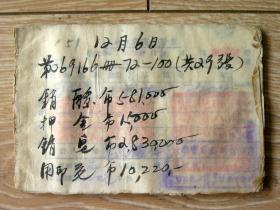 51 12月6日
第269166冊72-100(共29張)
銷 酥 币581,000
押 金 币15,000
銷 皂 币2,830,000
用印花 币10,220,-